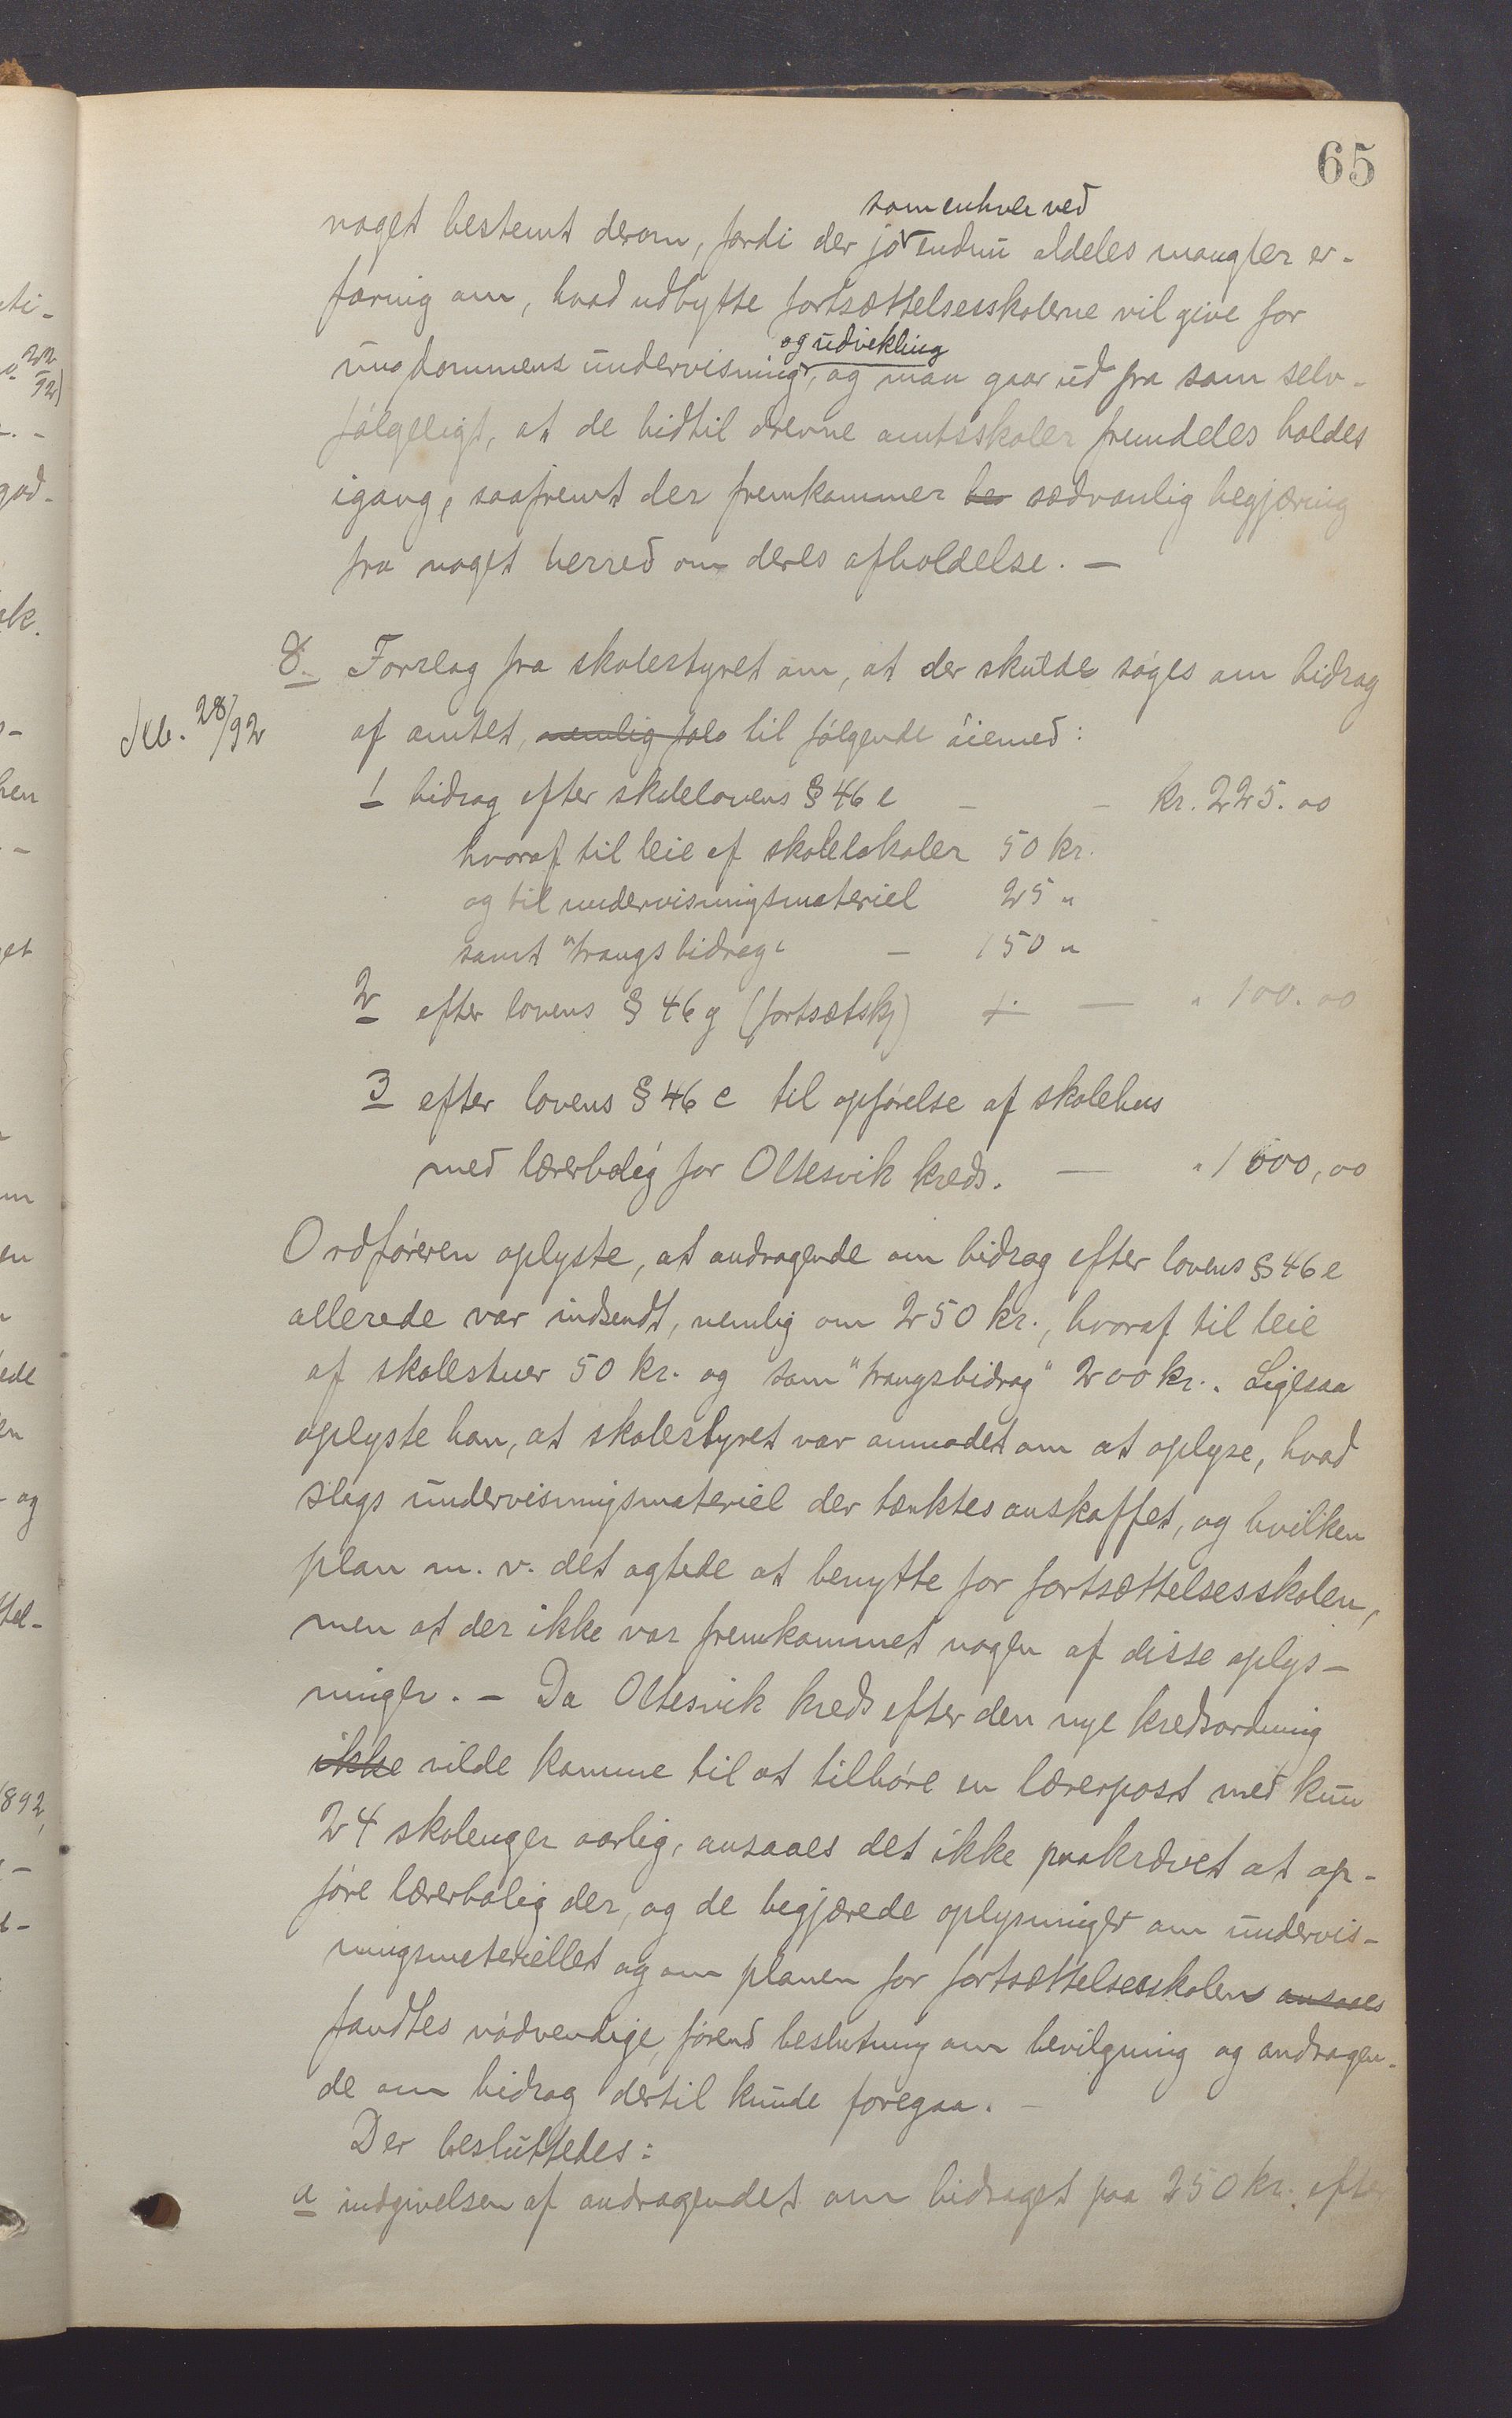 65
som enhver ved
noget bestemt derom, fordi der jo endnu aldeles mangler er-
faring om, hvad udbytte fortsættelsesskolerne vil give for
og udvikling
ungdommens undervisning, og man gaar ud fra som selv-
følgeligt, at de hidtil drevne amtsskoler fremdeles holdes
igang, saafremt der fremkommer be sædvanlig begjæring
fra noget herred om deres afholdelse. —
8. Forslag fra skolestyret om, at der skulde søges om bidrag
28/92
af amtet, nemlig til følgende øiemed:
1 bidrag efter skolelovens § 46 e - - kr. 225.00
hvoraf til leie af skolelokaler 50 kr.
og til undervisningsmateriel 25 "
samt "trangsbidrag" - 150 "
2 efter lovens § 46 g (fortsætsk) — " 100.00
3 efter lovens § 46 c til opførelse af skolehus
med lærerbolig for Oltesvik kreds. — " 1000,00
Ordføreren oplyste, at andragende om bidrag efter lovens § 46 e
allerede var indsendt, nemlig om 250 kr., hvoraf til leie
af skolestuer 50 kr. og som "trangsbidrag" 200 kr.. Ligesaa
oplyste han, at skolestyret var anmodet om at oplyse, hvad
slags undervisningsmateriel der tænktes anskaffet, og hvilken
plan m. v. det agtede at benytte for fortsættelsesskolen,
men at der ikke var fremkommet nogen af disse oplys-
ninger. - Da Oltesvik kreds efter den nye kredsordning
ikke vilde komme til at tilhøre en lærerpost med kun
24 skoleuger aarlig, ansaaes det ikke paakrævet at op-
føre lærerbolig der, og de begjærede oplysninger om undervis-
ningsmateriellet og om planen for fortsættelsesskolen ansaaes
fandtes nødvendige, førend beslutning om bevilgning og andragen-
de om bidrag dertil kunde foregaa. -
Der besluttedes:
a indgivelsen af andragendet om bidraget paa 250 kr. efter